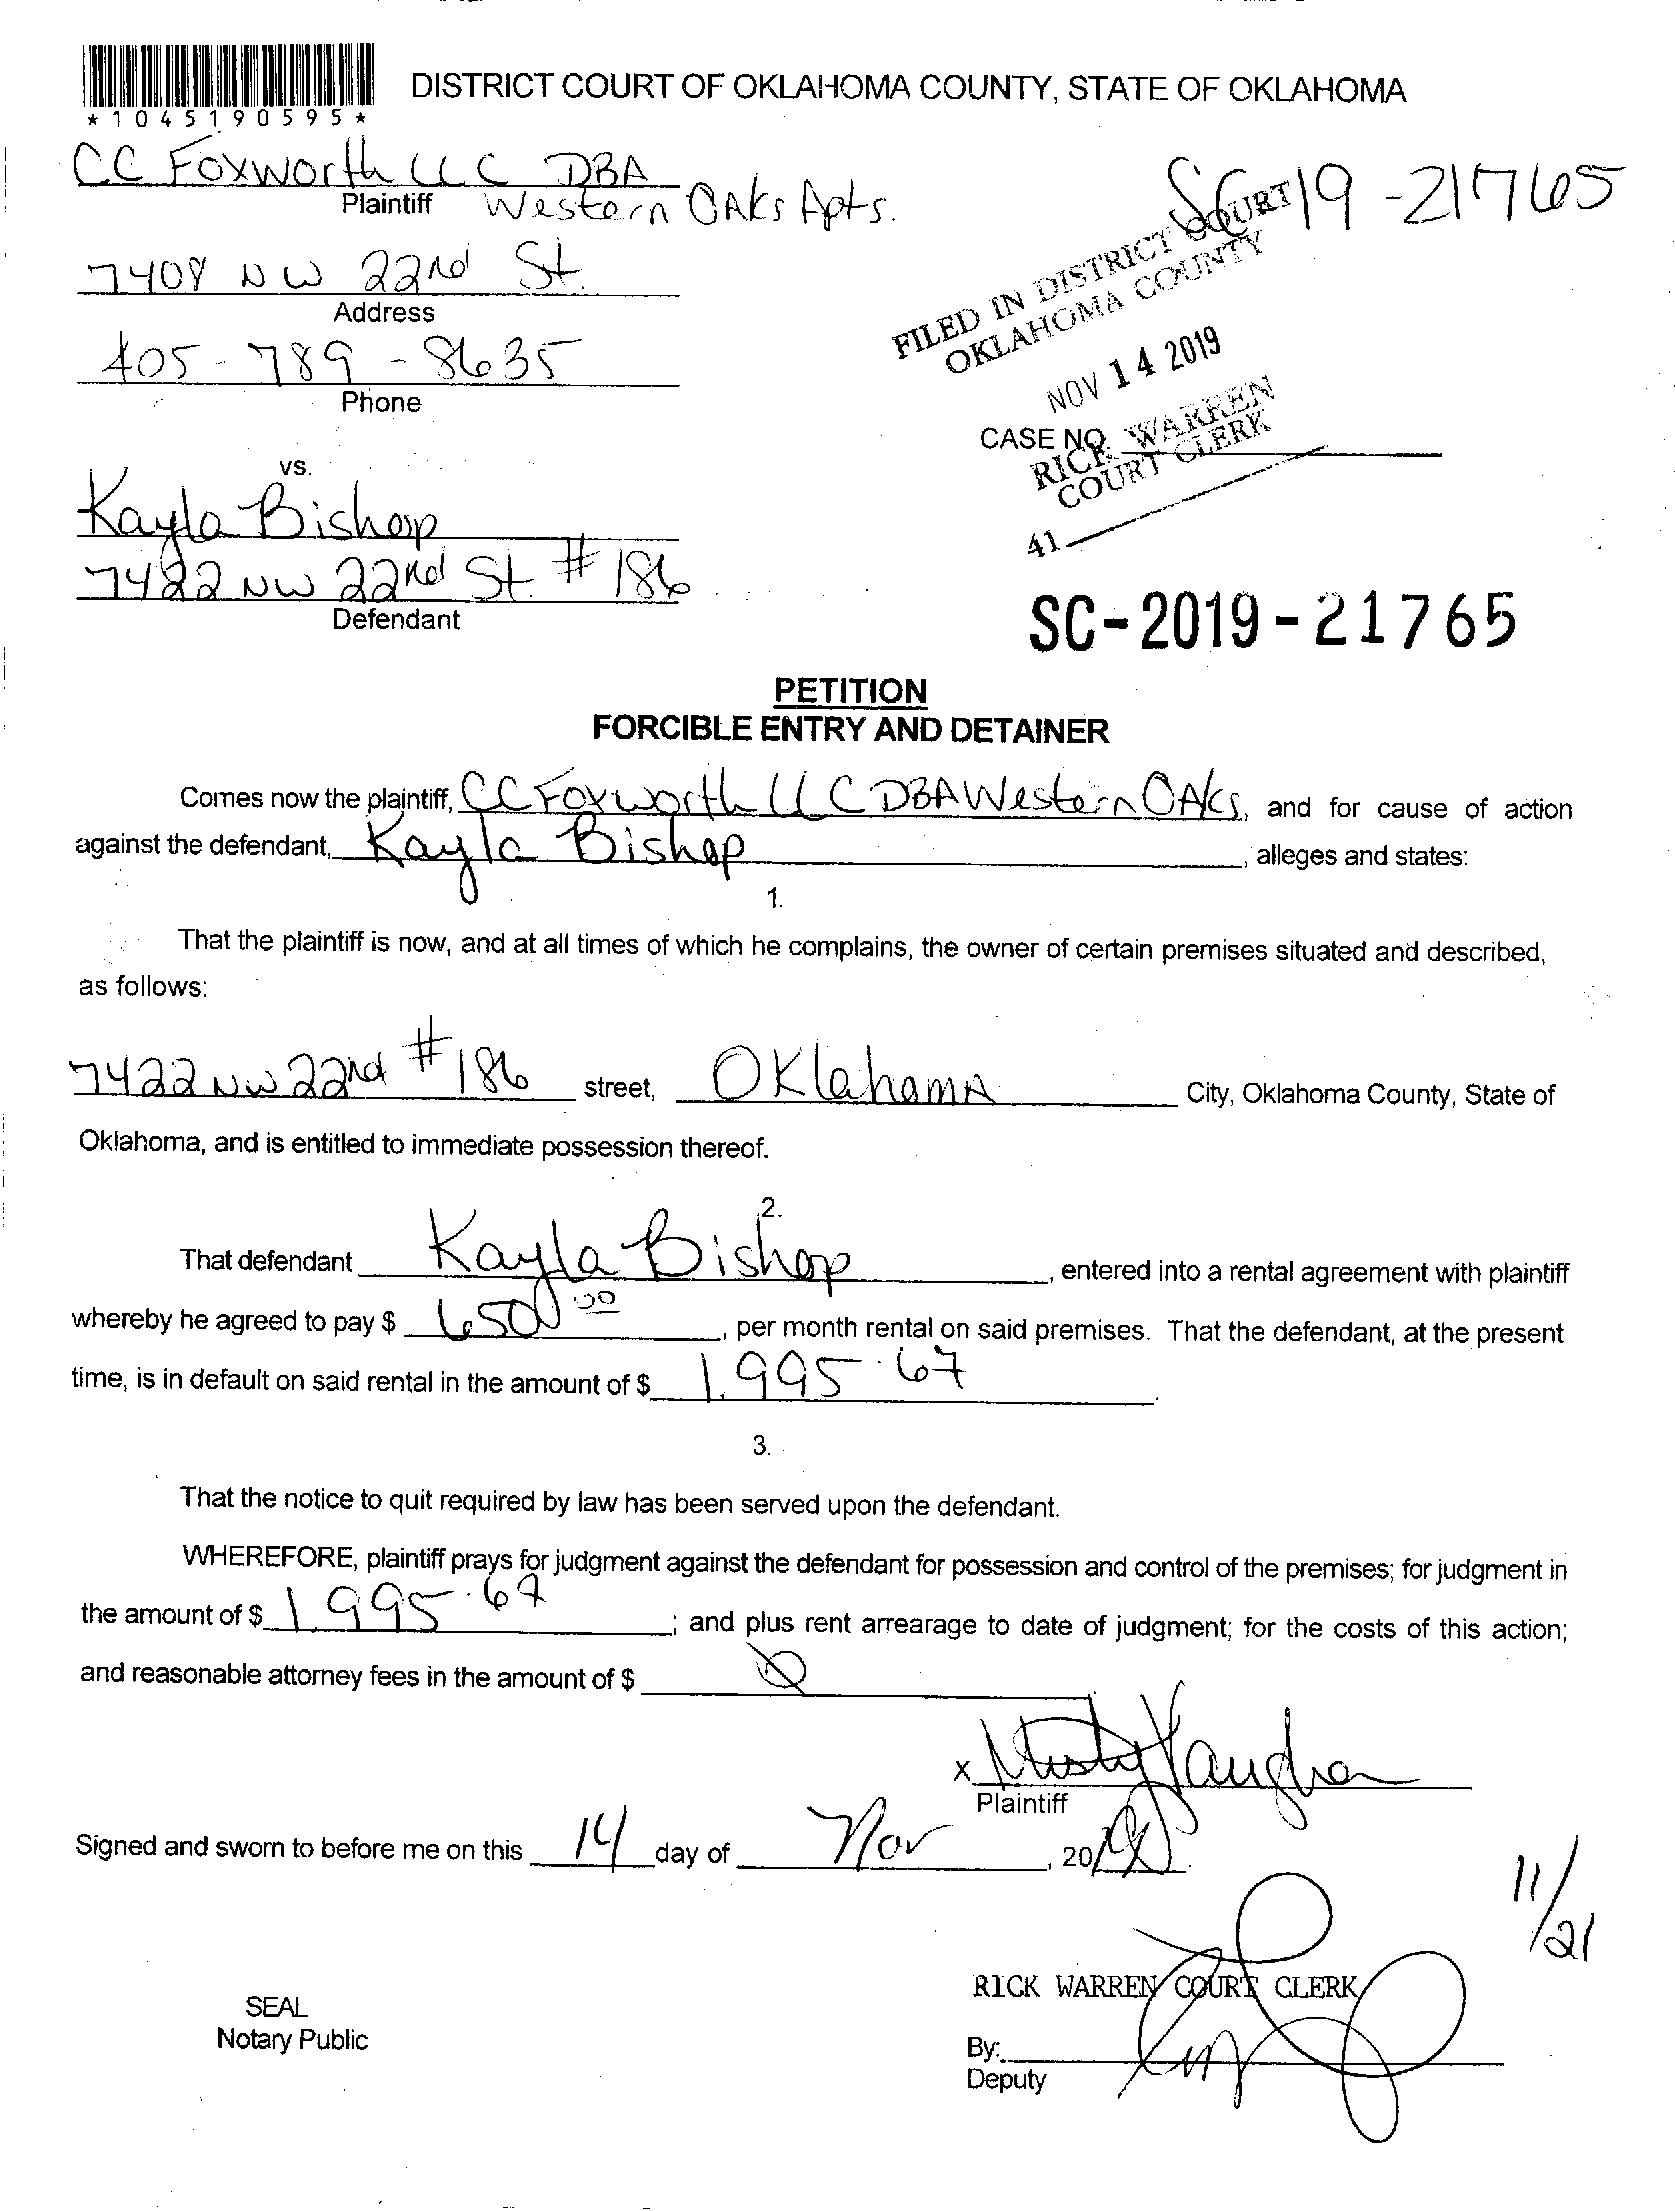 DISTRICT COURT OF OKLAHOMA COUNTY, STATE OF OKLAHOMA
*1045190595*
CC Foxworth LLC DBA
Plaintiff Western OAks Apts.
SC 19-21765
7408 NW 22nd St.
Address
FILED IN DISTRICT COURT
OKLAHOMA COUNTY
405-789-8635
Phone
NOV 14 2019
CASE NO.
RICK WARREN
COURT CLERK
41
vs.
Kayla Bishop
7422 NW 22nd St. #186
Defendant
SC-2019-21765
PETITION
FORCIBLE ENTRY AND DETAINER
Comes now the plaintiff, CC Foxworth LLC DBA Western OAks, and for cause of action
against the defendant, Kayla Bishop, alleges and states:
1.
That the plaintiff is now, and at all times of which he complains, the owner of certain premises situated and described,
as follows:
7422 NW 22nd #186 street, OKlahomA City, Oklahoma County, State of
Oklahoma, and is entitled to immediate possession thereof.
2.
That defendant Kayla Bishop, entered into a rental agreement with plaintiff
whereby he agreed to pay $ 650.00, per month rental on said premises. That the defendant, at the present
time, is in default on said rental in the amount of $ 1,995.67.
3.
That the notice to quit required by law has been served upon the defendant.
WHEREFORE, plaintiff prays for judgment against the defendant for possession and control of the premises; for judgment in
the amount of $ 1,995.67; and plus rent arrearage to date of judgment; for the costs of this action;
and reasonable attorney fees in the amount of $ 0
x Misty Vaughn
Plaintiff
Signed and sworn to before me on this 14 day of Nov, 2019.
11/21
RICK WARREN COURT CLERK
SEAL
Notary Public
By:
Deputy